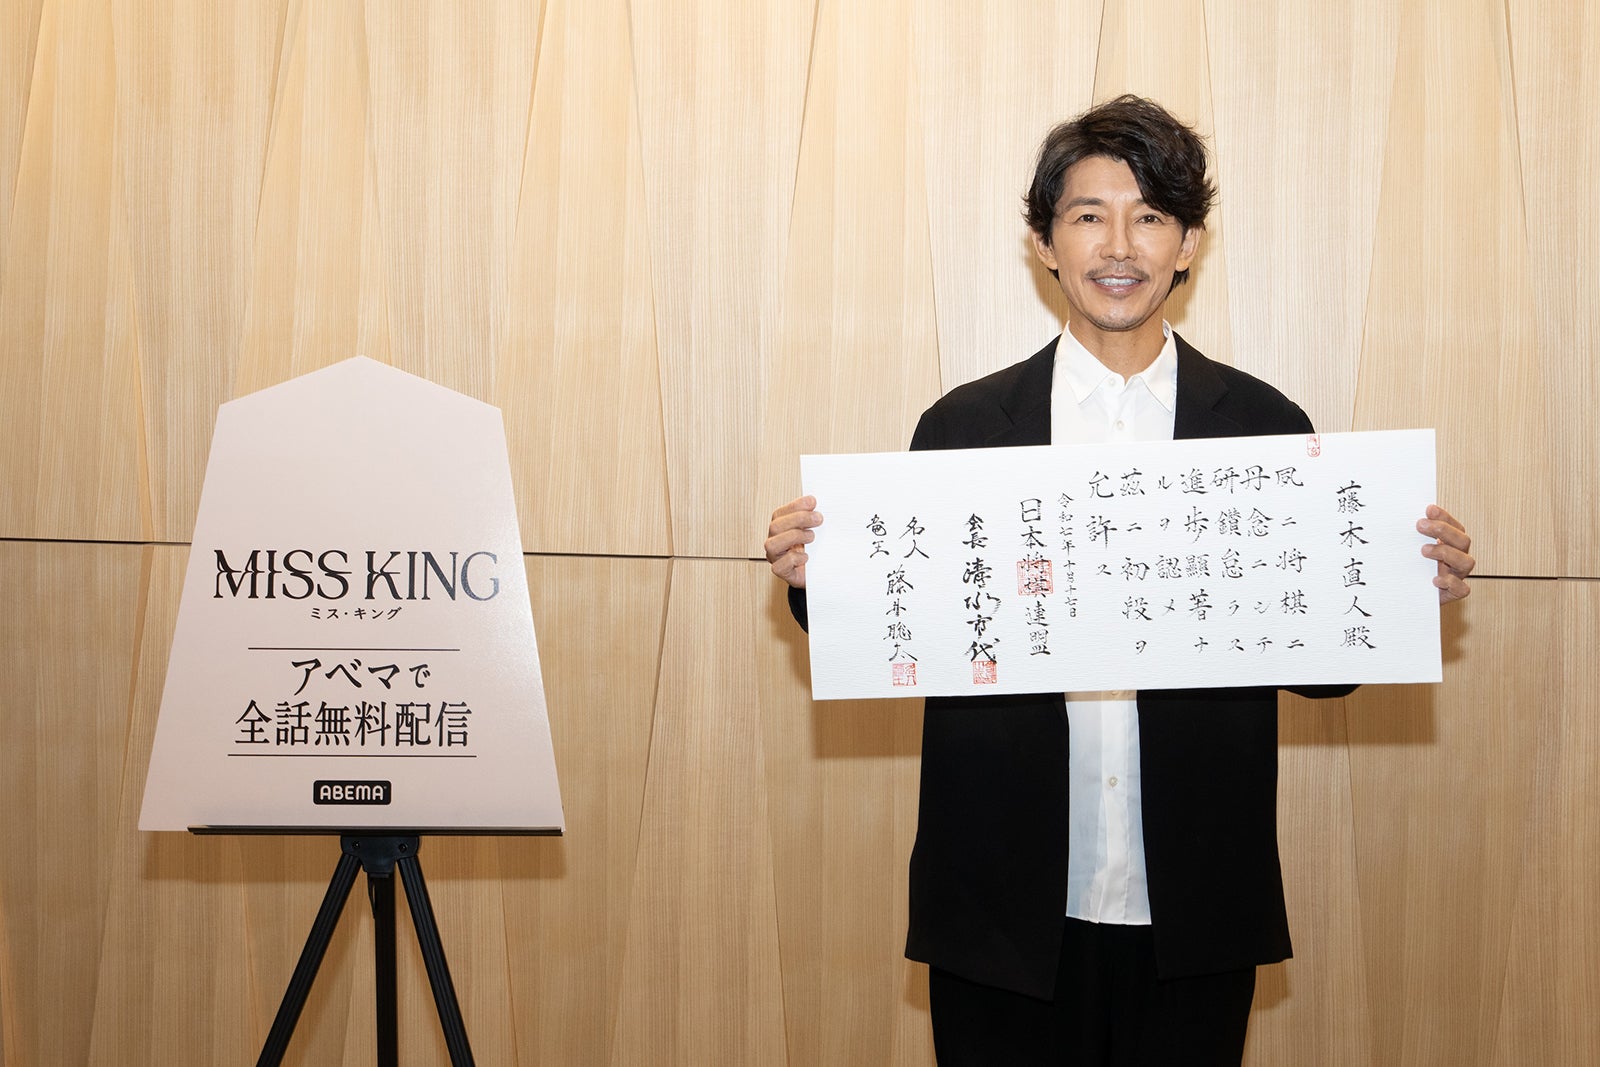 MISS KING
ミス・キング
アベマで
全話無料配信
ABEMA
藤木直人殿
夙ニ将棋ニ
丹念ニシテ
研鑽怠ラス
進歩顕著ナ
ルヲ認メ
茲ニ初段ヲ
允許ス
令和七年十月十七日
日本将棋連盟
会長 清水市代
名人
竜王 藤井聡太